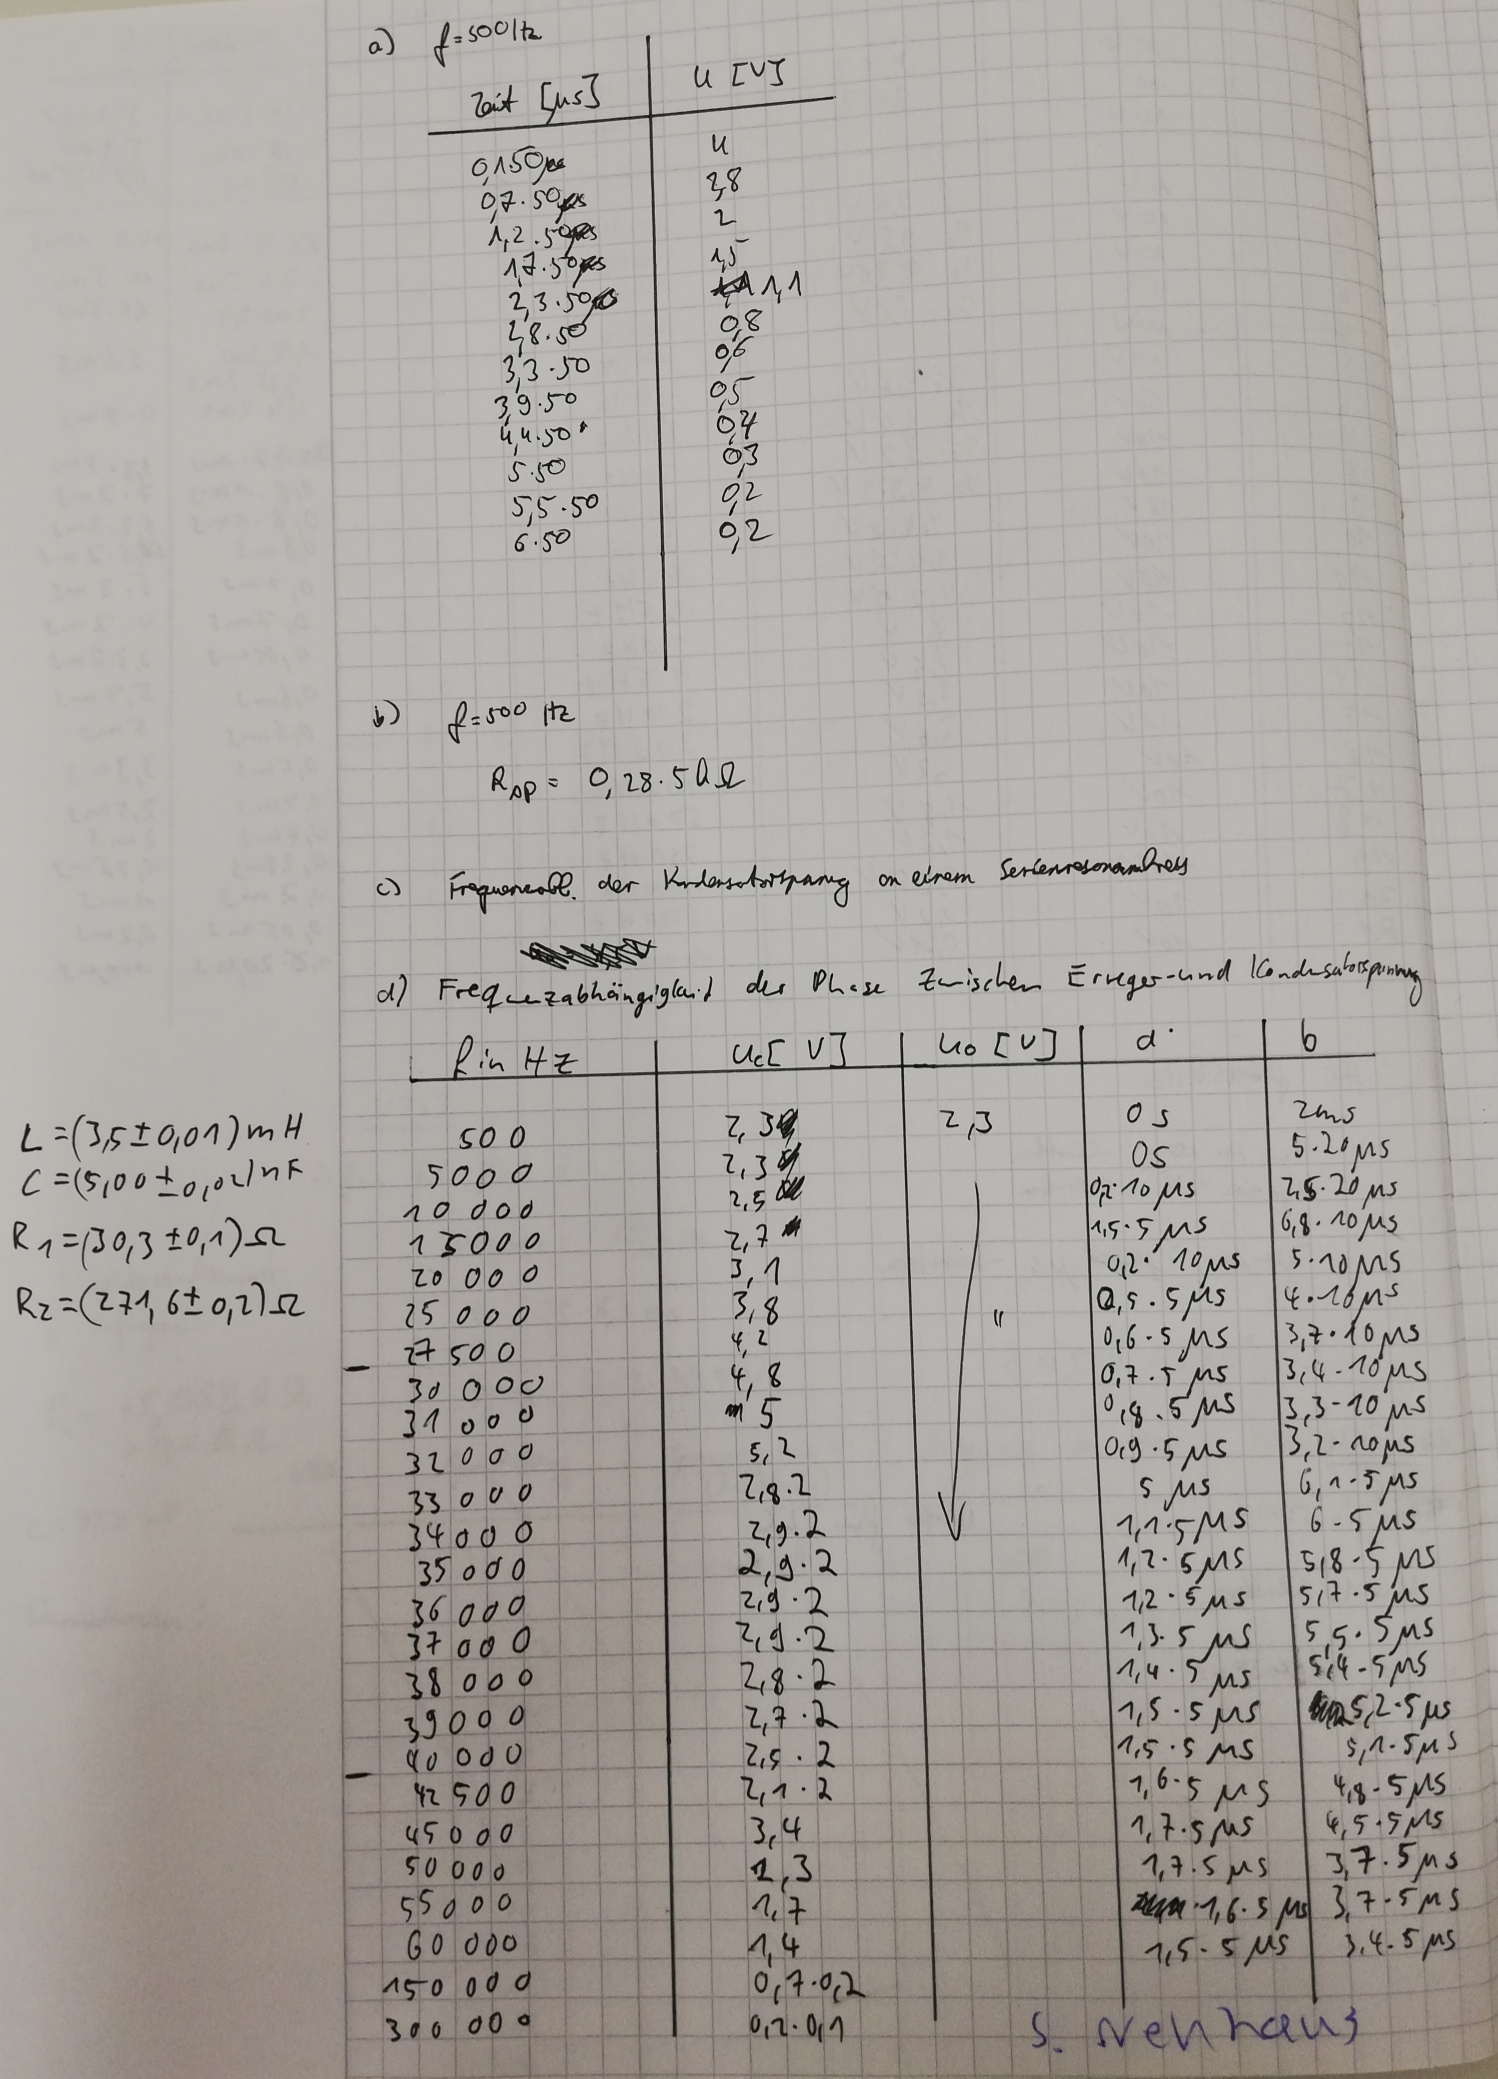 a) f=500Hz
Zeit [μs] U [V]
0,1·50 4
0,7·50 2,8
1,2·50 2
1,7·50 1,5
2,3·50 1,1
2,8·50 0,8
3,3·50 0,6
3,9·50 0,5
4,4·50 0,4
5·50 0,3
5,5·50 0,2
6·50 0,2
b) f=500 Hz
Rap = 0,28·5kΩ
c) Frequenzabh. der Kondensatorspannung an einem Serienresonanzkreis
d) Frequenzabhängigkeit der Phase zwischen Erreger- und Kondensatorspannung
f in Hz Uc [V] U0 [V] a b
500 2,3 2,3 0s 2ms
5000 2,3 0s 5·20μs
10 000 2,5 0,2·10μs 2,5·20μs
15000 2,7 1,5·5μs 6,8·10μs
20 000 3,1 0,2·10μs 5·10μs
25 000 3,8 " 0,5·5μs 4·10μs
27 500 4,2 0,6·5μs 3,7·10μs
30 000 4,8 0,7·5μs 3,4·10μs
31 000 5 0,8·5μs 3,3·10μs
32 000 5,2 0,9·5μs 3,2·10μs
33 000 2,8·2 5μs 6,1·5μs
34000 2,9·2 1,1·5μs 6·5μs
35 000 2,9·2 1,2·5μs 5,8·5μs
36 000 2,9·2 1,2·5μs 5,7·5μs
37 000 2,9·2 1,3·5μs 5,5·5μs
38 000 2,8·2 1,4·5μs 5,4·5μs
39000 2,7·2 1,5·5μs 5,2·5μs
40 000 2,5·2 1,5·5μs 5,1·5μs
42 500 2,1·2 1,6·5μs 4,8·5μs
45 000 3,4 1,7·5μs 4,5·5μs
50 000 2,3 1,7·5μs 3,7·5μs
55 000 1,7 1,6·5μs 3,7·5μs
60 000 1,4 1,5·5μs 3,4·5μs
150 000 0,7·0,2
300 000 0,2·0,1
L=(3,5±0,01)mH
C=(5,00±0,02)nF
R1=(30,3±0,1)Ω
R2=(271,6±0,2)Ω
S. Nenhaus